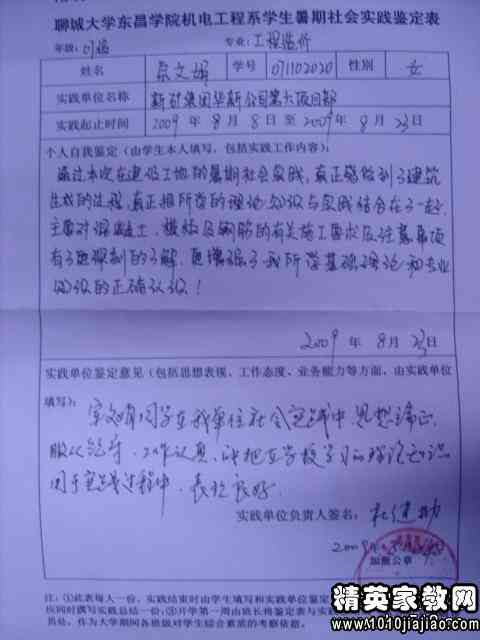 聊城大学东昌学院机电工程系学生暑期社会实践鉴定表
年级: 专业: 工程造价
姓名 文娟 学号 071102020 性别 女
实践单位名称 新矿集团华新公司第六项目部
实践起止时间 2009 年 8 月 8 日 至 2009 年 8 月 23 日
个人自我鉴定(由学生本人填写,包括实践工作内容):
通过本次在建设工地的暑期社会实践,真正感受到了建筑
生成的过程,真正把所学的理论知识与实践结合在了一起,
主要对混凝土、模板及钢筋的有关施工要求及注意事项
有了更深刻的了解,更增强了我所学基础理论和专业
知识的正确认识!
2009 年 8 月 23 日
实践单位鉴定意见(包括思想表现、工作态度、业务能力等方面,由实践单位
填写):
文娟同学在我单位社会实践中,思想端正,
服从领导,工作认真,能把在学校学习的理论知识
用于实践过程中,表现良好。
实践单位负责人签名:
2009年
加盖公章
注:①此表每人一份,实践结束时由学生填写和实践单位鉴定
应同时撰写实践总结一份;③开学第一周由班长将鉴定表与实践
员处,作为大学期间各班级对学生综合素质的考察依据。
精英家教网
www.1010jiajiao.com